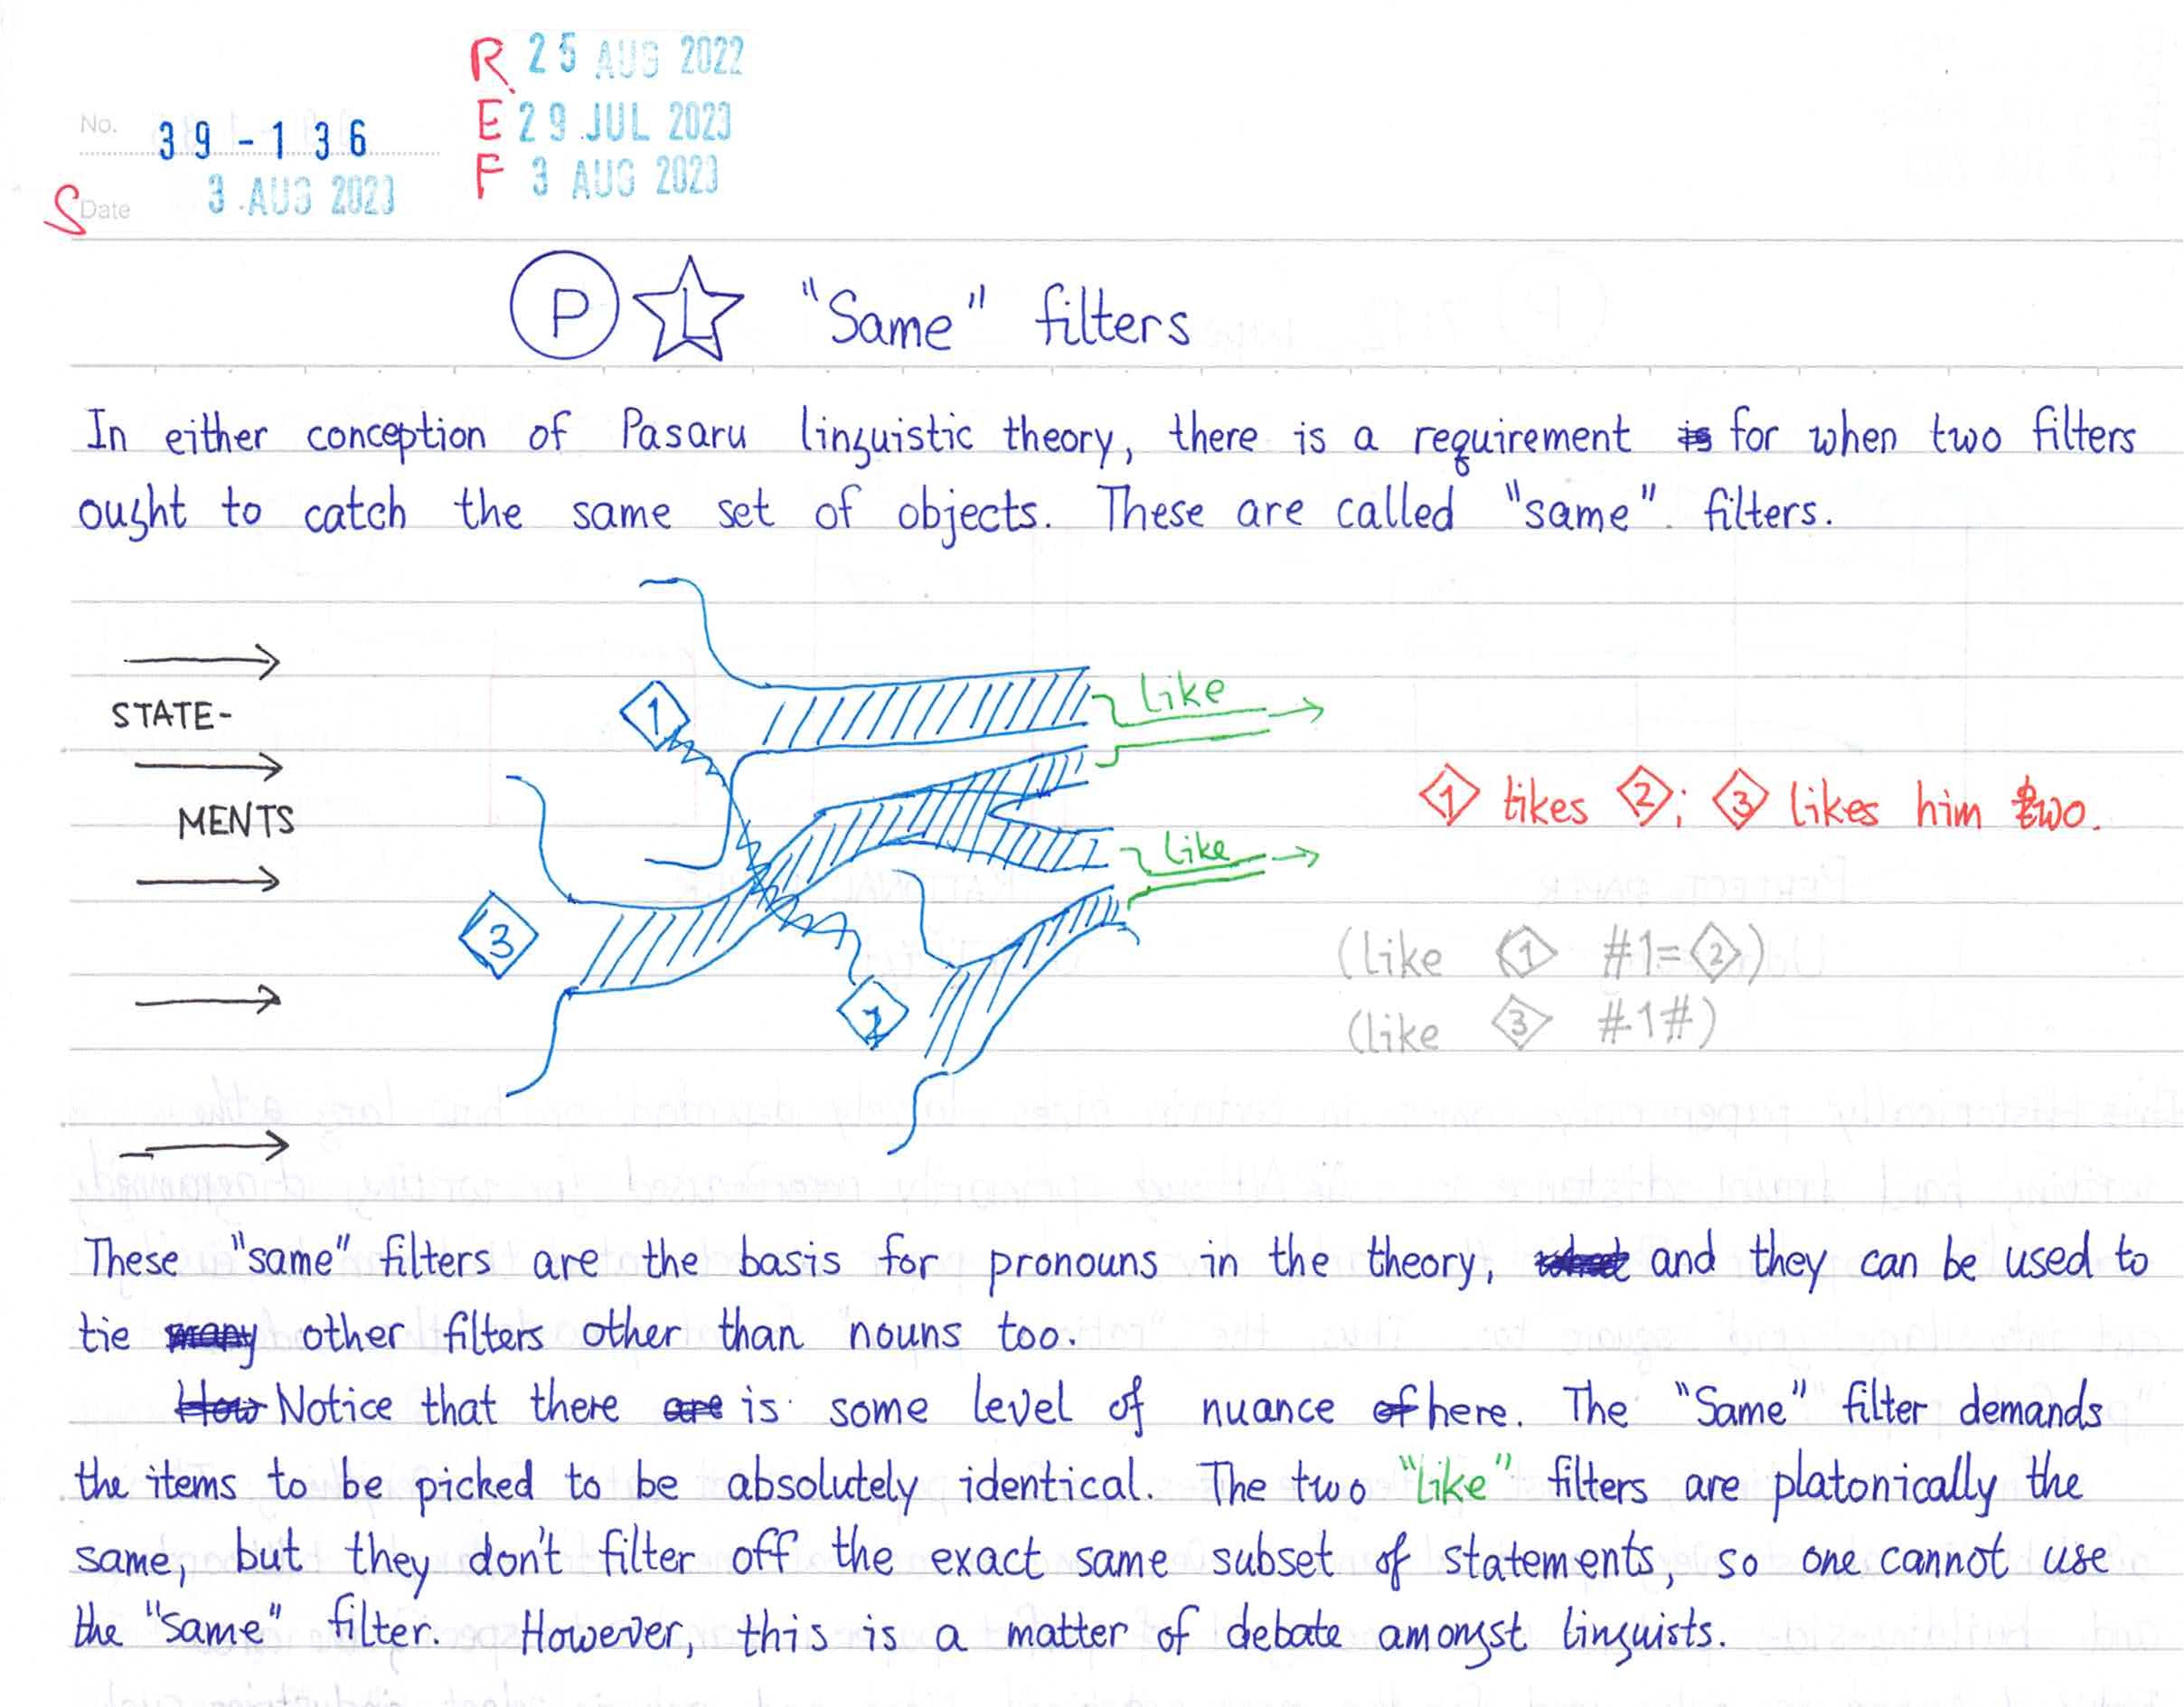 R 25 AUG 2022
No. 39-136
E 29 JUL 2023
F 3 AUG 2023
S Date 3 AUG 2023
P L "Same" filters
In either conception of Pasaru linguistic theory, there is a requirement is for when two filters
ought to catch the same set of objects. These are called "same" filters.
STATE-
MENTS
1
3
2
like
like
1 likes 2; 3 likes him two.
(like 1 #1=2)
(like 3 #1#)
These "same" filters are the basis for pronouns in the theory, and they can be used to
tie many other filters other than nouns too.
How Notice that there are is some level of nuance of here. The "Same" filter demands
the items to be picked to be absolutely identical. The two "like" filters are platonically the
same, but they don't filter off the exact same subset of statements, so one cannot use
the "same" filter. However, this is a matter of debate amongst linguists.